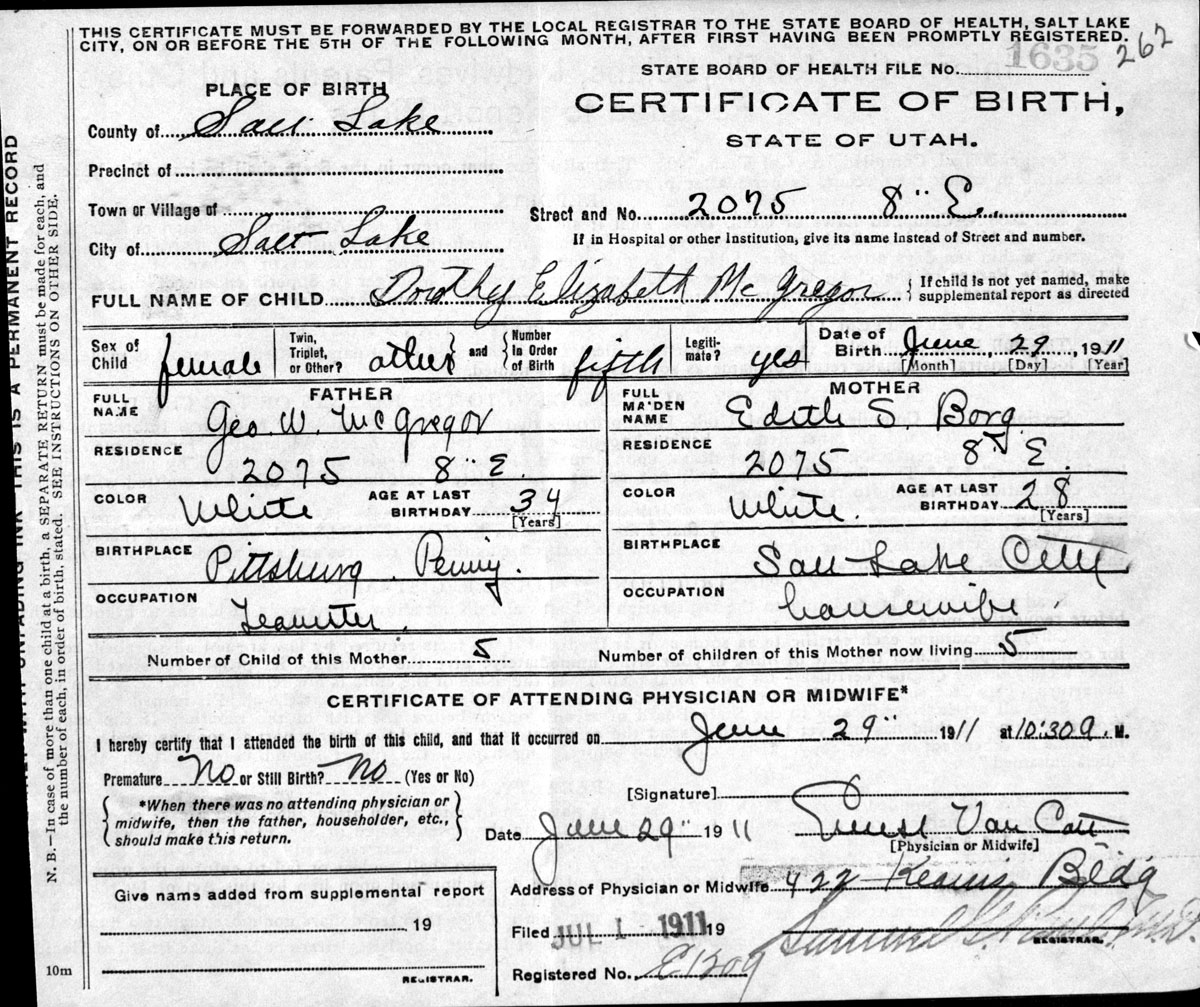 THIS CERTIFICATE MUST BE FORWARDED BY THE LOCAL REGISTRAR TO THE STATE BOARD OF HEALTH, SALT LAKE
CITY, ON OR BEFORE THE 5TH OF THE FOLLOWING MONTH, AFTER FIRST HAVING BEEN PROMPTLY REGISTERED.
262
STATE BOARD OF HEALTH FILE No. 1635
PLACE OF BIRTH
CERTIFICATE OF BIRTH,
STATE OF UTAH.
County of Salt Lake
Precinct of
Town or Village of
Street and No. 2075 8" E.
City of Salt Lake
If in Hospital or other Institution, give its name instead of Street and number.
FULL NAME OF CHILD Dorothy Elizabeth McGregor { If child is not yet named, make supplemental report as directed
Sex of Child female
Twin, Triplet, or Other? other } and { Number In Order of Birth fifth
Legiti-mate? yes
Date of Birth June, 29, 1911
[Month] [Day] [Year]
FATHER
FULL NAME Geo. W. McGregor
RESIDENCE 2075 8" E.
COLOR White AGE AT LAST BIRTHDAY 34 [Years]
BIRTHPLACE Pittsburg
OCCUPATION Teamster.
MOTHER
FULL MAIDEN NAME Edith S. Borg
RESIDENCE 2075 8th E.
COLOR White. AGE AT LAST BIRTHDAY 28 [Years]
BIRTHPLACE Salt Lake City
OCCUPATION housewife.
Number of Child of this Mother 5
Number of children of this Mother now living 5
CERTIFICATE OF ATTENDING PHYSICIAN OR MIDWIFE*
I hereby certify that I attended the birth of this child, and that it occurred on June 29" 1911 at 10:30 a. M.
Premature No or Still Birth? No (Yes or No)
{ *When there was no attending physician or midwife, then the father, householder, etc., should make this return. }
[Signature]
Date June 29" 1911 Ernest Van Cott
[Physician or Midwife]
Address of Physician or Midwife 422 Kearns Bldg
Give name added from supplemental report
19
REGISTRAR.
Filed JUL 1 1911 19
Samuel G. M.D.
REGISTRAR.
Registered No. E1309
10m
THIS IS A PERMANENT RECORD
N. B.—In case of more than one child at a birth, a SEPARATE RETURN must be made for each, and
the number of each, in order of birth, stated. SEE INSTRUCTIONS ON OTHER SIDE.